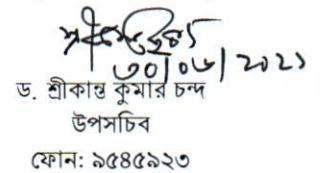 ৩০/০৬/২০২১
ড. শ্রীকান্ত কুমার চন্দ
উপসচিব
ফোন: ৯৫৪৫৯২৩